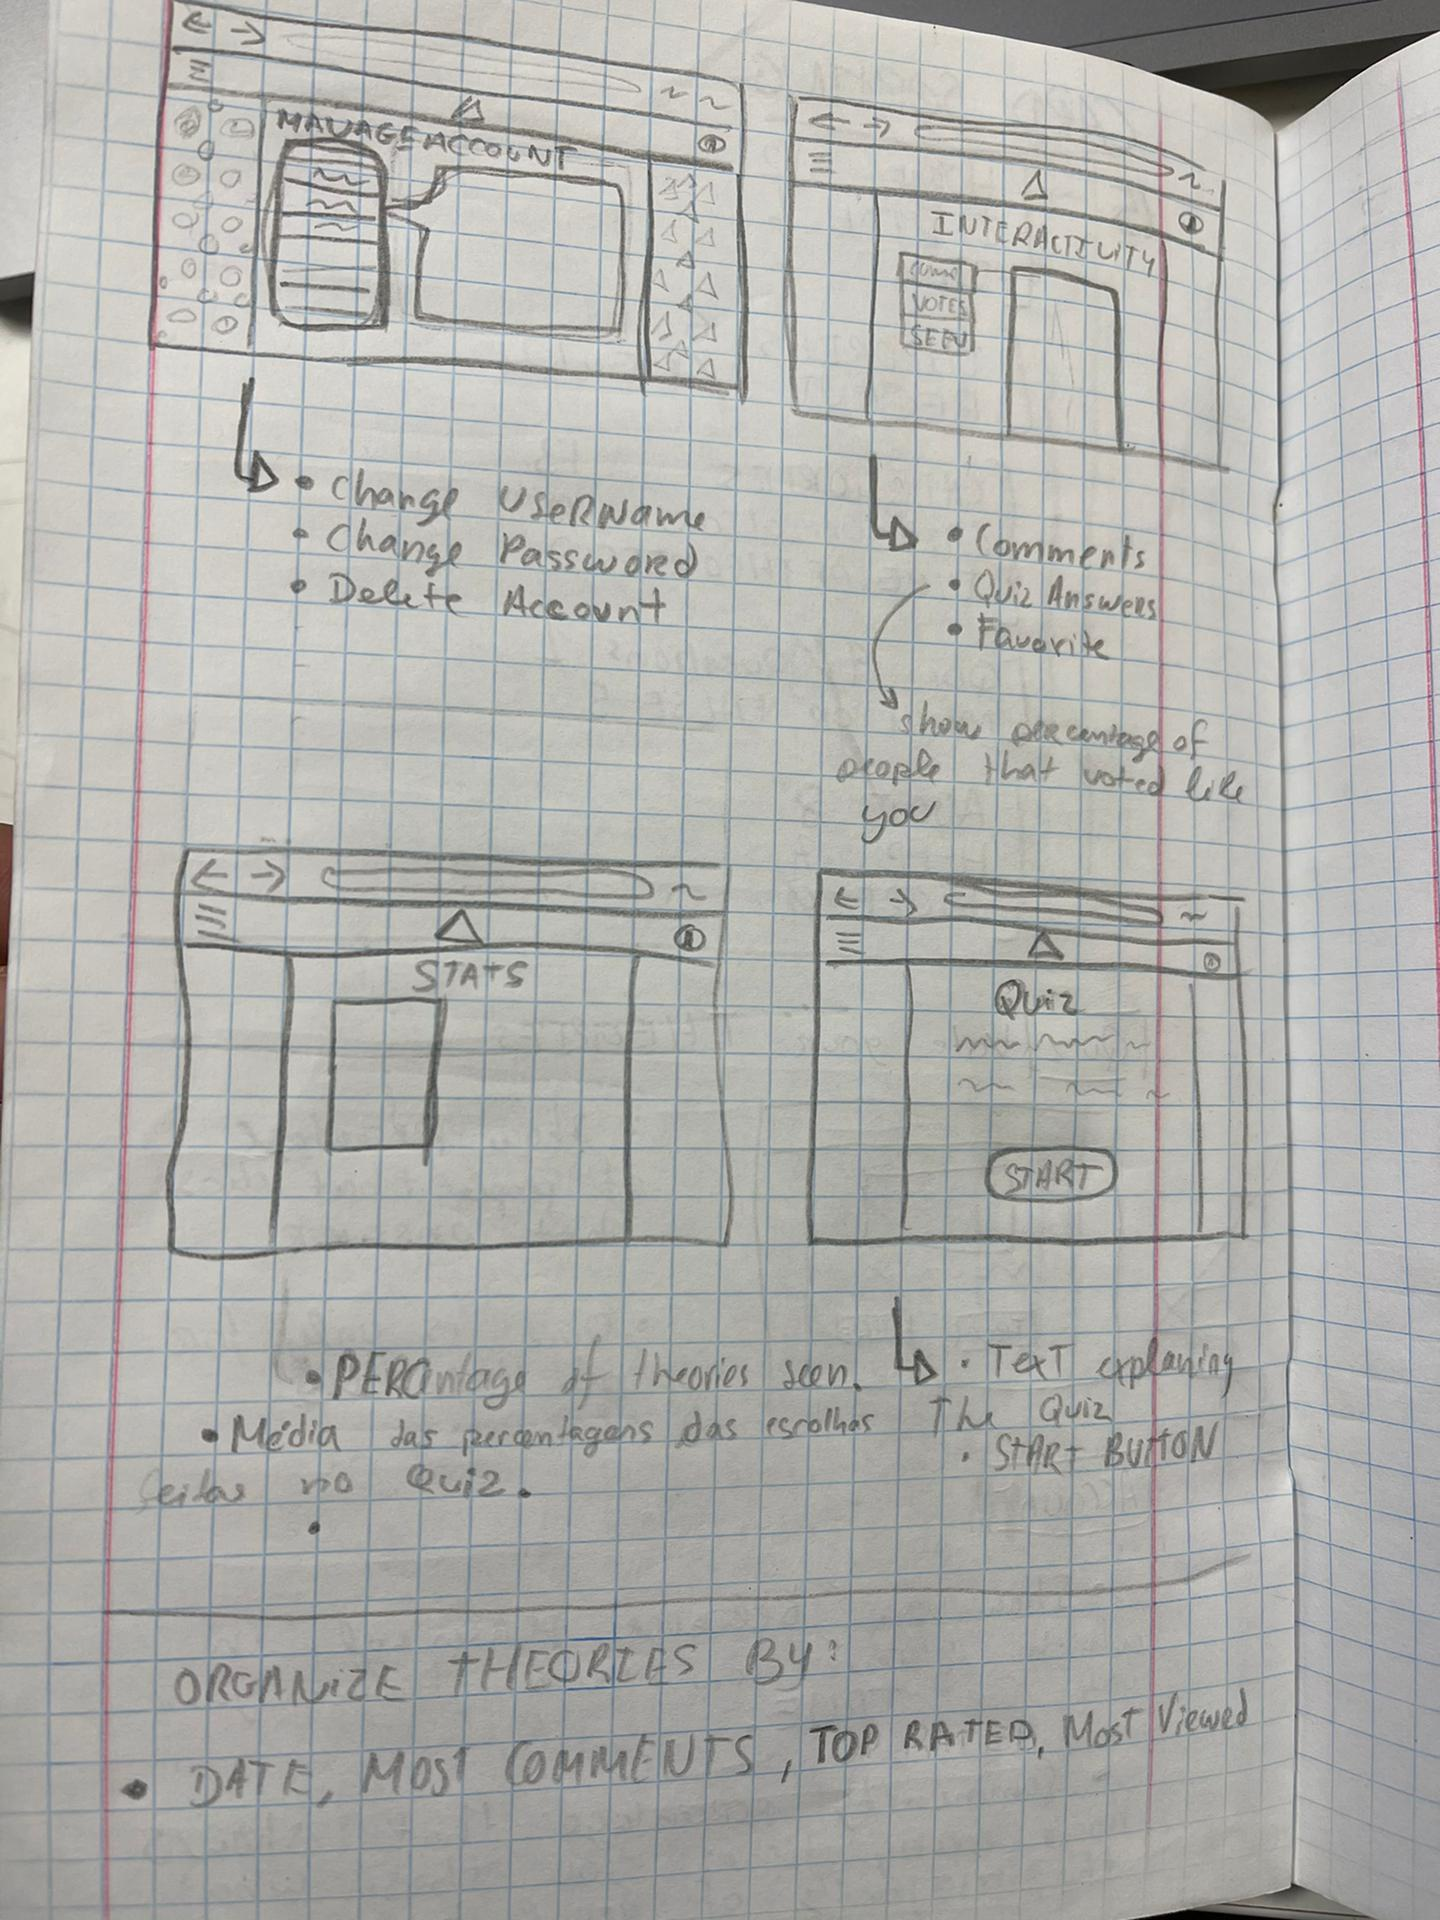 MANAGE ACCOUNT
• Change Username
• Change Password
• Delete Account
INTERACTIVITY
VOTES
SEEN
• Comments
• Quiz Answers
• Favorite
show percentage of
people that voted like
you
STATS
• PERCentage of theories seen.
• Média das percentagens das escolhas
feitas no Quiz.
•
Quiz
START
• Text explaning
The Quiz
• START BUTTON
ORGANIZE THEORIES BY:
• DATE, MOST COMMENTS, TOP RATED, Most Viewed